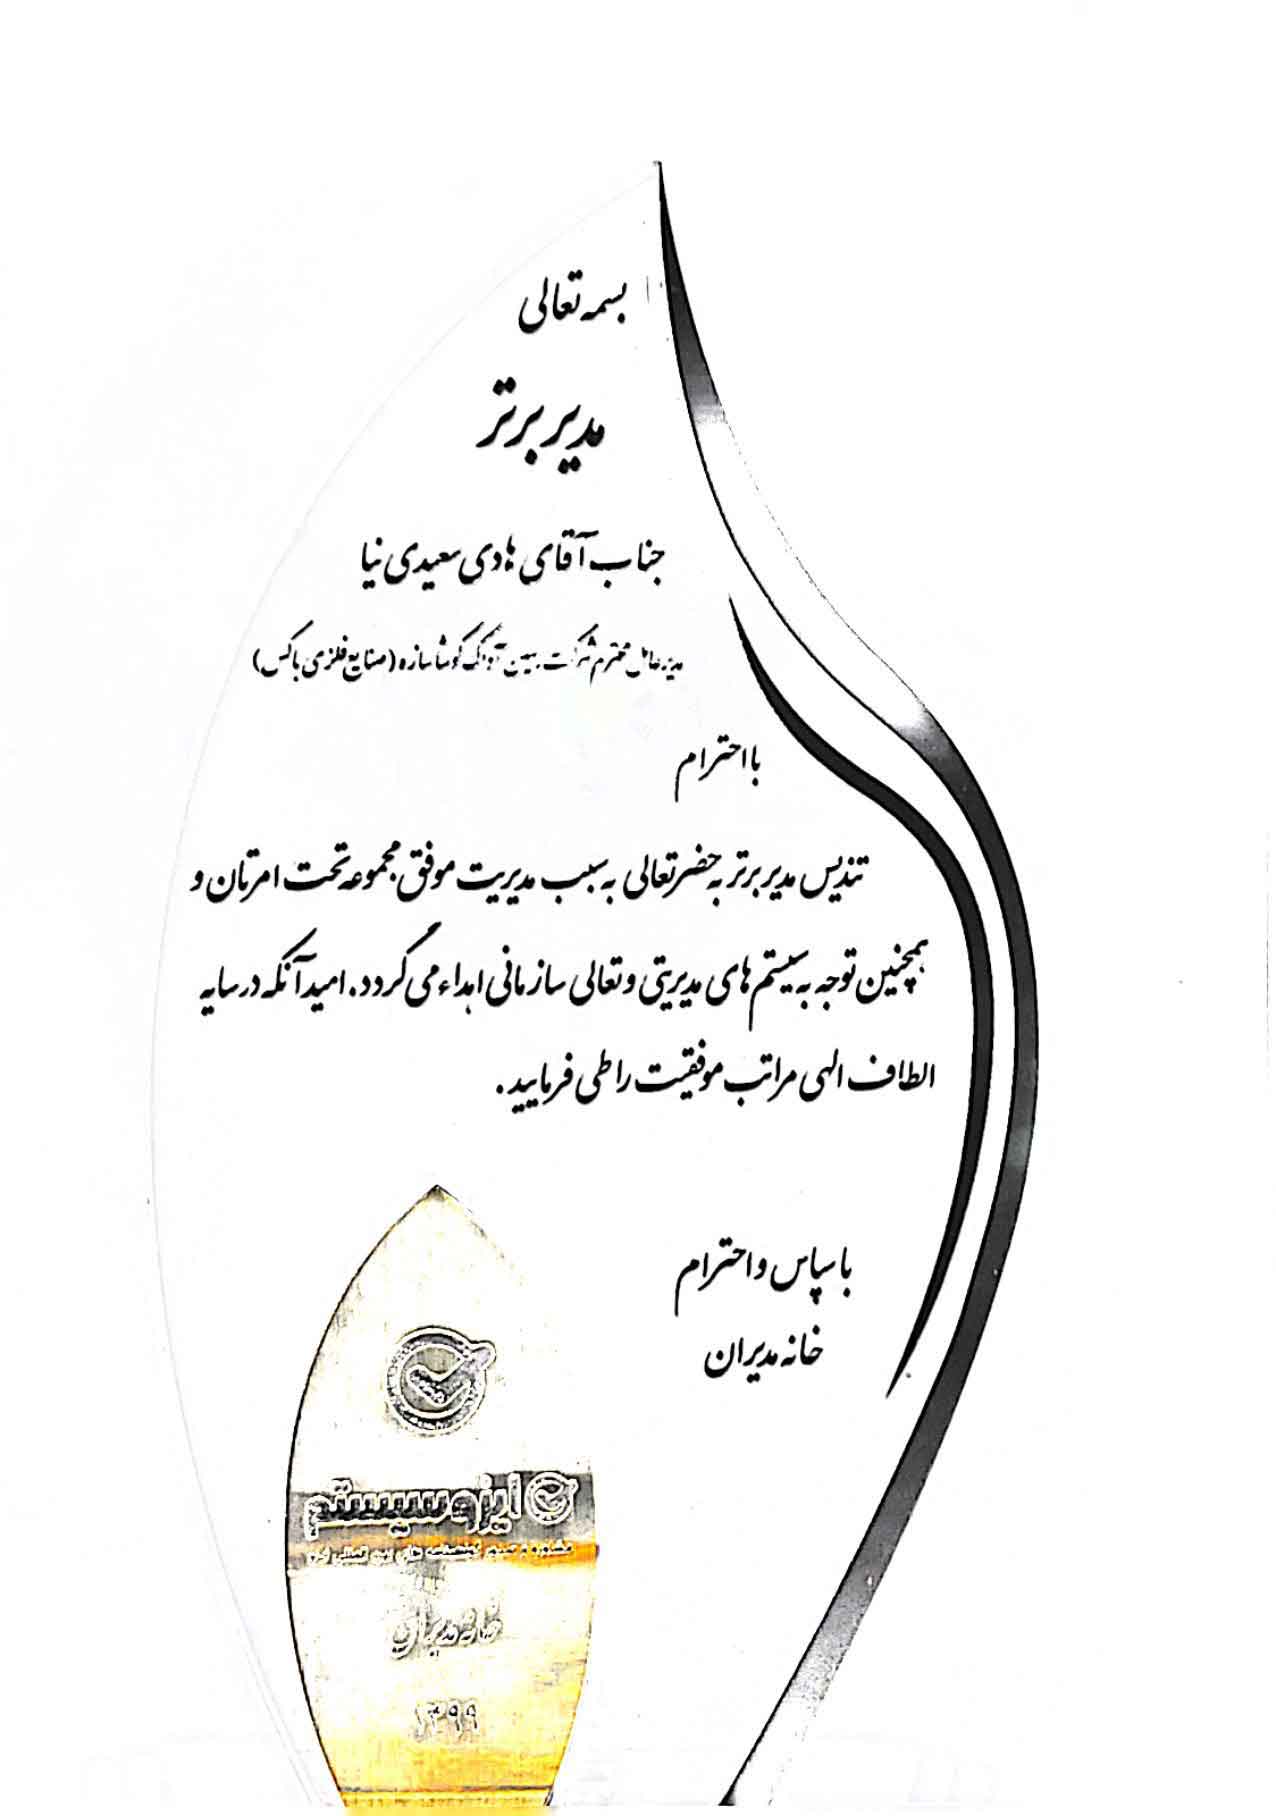 بسمه تعالی
مدیر برتر
جناب آقای هادی سعیدی نیا
مدیر عامل محترم شرکت بهین آونگ کوشا سازه (صنایع فلزی باکس)
با احترام
تندیس مدیر برتر به حضرتعالی به سبب مدیریت موفق مجموعه تحت امرتان و
همچنین توجه به سیستم های مدیریتی و تعالی سازمانی اهداء می گردد. امید آنکه در سایه
الطاف الهی مراتب موفقیت را طی فرمایید.
با سپاس و احترام
خانه مدیران
ایزوسیستم
خانه مدیران
۱۳۹۹